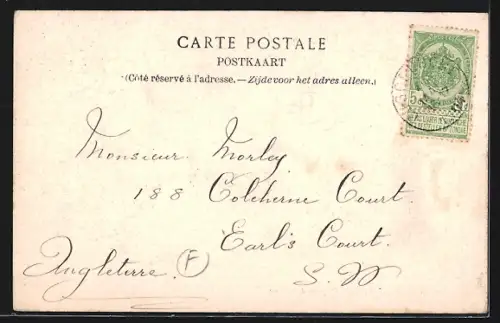 CARTE POSTALE
POSTKAART
(Côté réservé à l'adresse. — Zijde voor het adres alleen.)
5
Monsieur Morley
188 Colcherne Court.
Earl's Court.
Angleterre. F S. W.